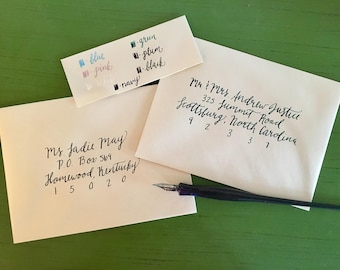 blue
pink
navy
green
plum
black
Mr & Mrs Andrew Justice
323 Summit Road
Scottsburg, North Carolina
Ms Sadie May
P.O Box 569
Homewood, Kentucky
1 5 0 2 0